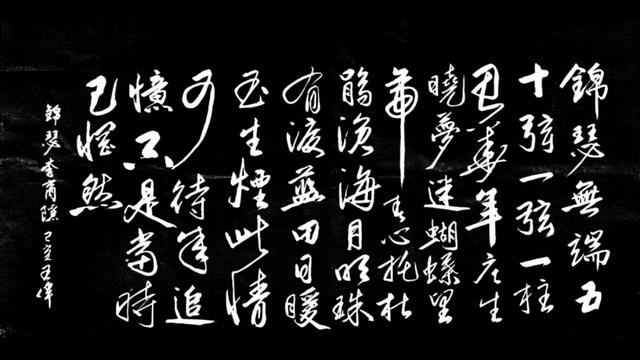 錦瑟無端五
十弦一弦一柱
思華年庄生
曉夢迷蝴蝶望
帝春心托杜
鵑滄海月明珠
有淚藍田日暖
玉生煙此情
可待成追
憶只是當時
已惘然
錦瑟 李商隱 己亥 王偉